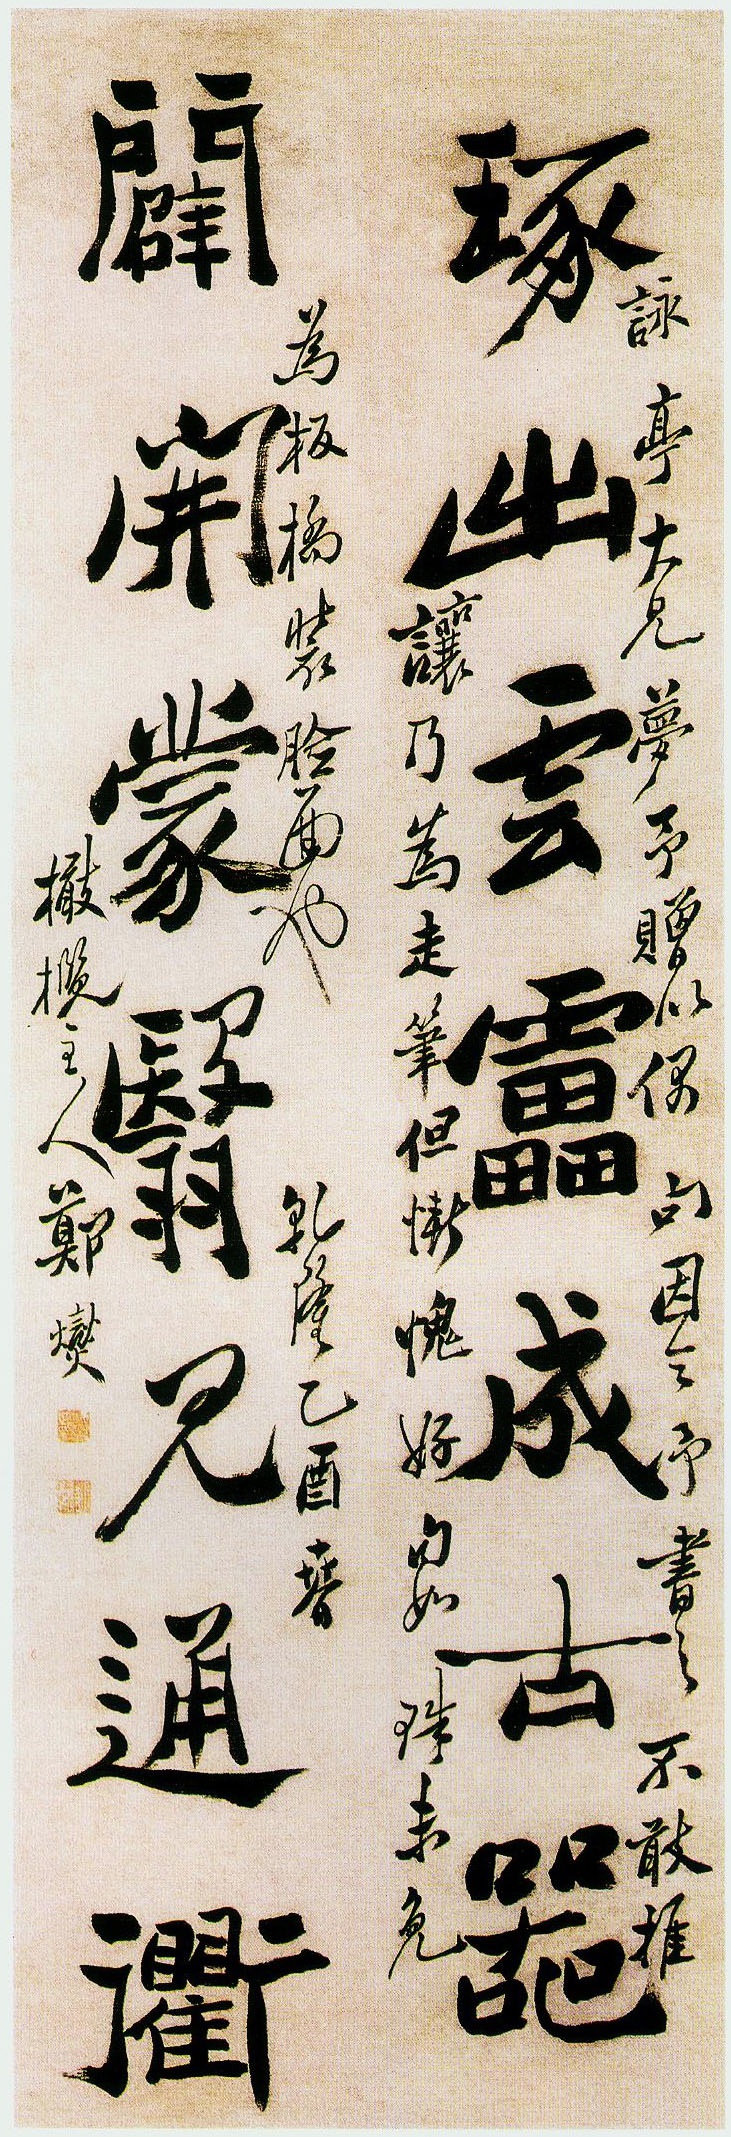 詠亭大兄夢予贈以偶句因令予書之不敢推
琢出雲靁成古器
讓乃為走筆但慚愧好句如珠未免
為板橋裝臉面也
乾隆乙酉
闢開蒙翳見通衢
橄欖主人鄭燮